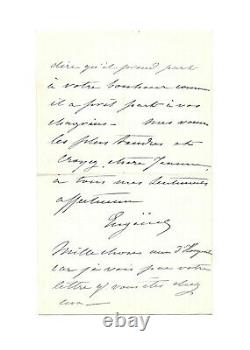 dire qu'il prend part
à votre bonheur comme
il a prit part à vos
chagrins — mes vœux
les plus tendres et
croyez, chère Jeanne,
à tous mes sentiments
affectueux
Eugénie
Mille choses aux d'
car je vois par votre
lettre q/ vous êtes chez
eux —